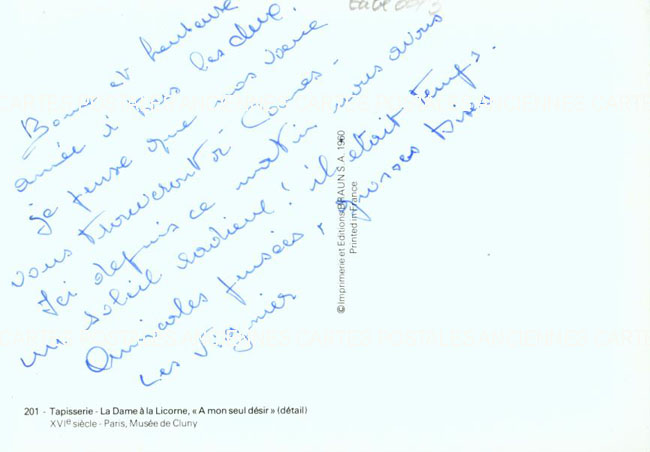 Bonne et heureuse
année à vous les deux.
je pense que nos vœux
vous trouveront à Cannes -
Ici depuis ce matin nous avons
un soleil radieux ! il était temps.
Amicales pensées, grosses bises
Les Vignier
© Imprimerie et Editions BRAUN S. A. 1960
Printed in France
201 - Tapisserie - La Dame à la Licorne, « A mon seul désir » (détail)
XVIe siècle - Paris, Musée de Cluny
CARTES POSTALES ANCIENNES CARTES POSTALES ANCIENNES CARTE
CARTES POSTALES ANCIENNES CARTES POSTALES ANCIENNES CARTE